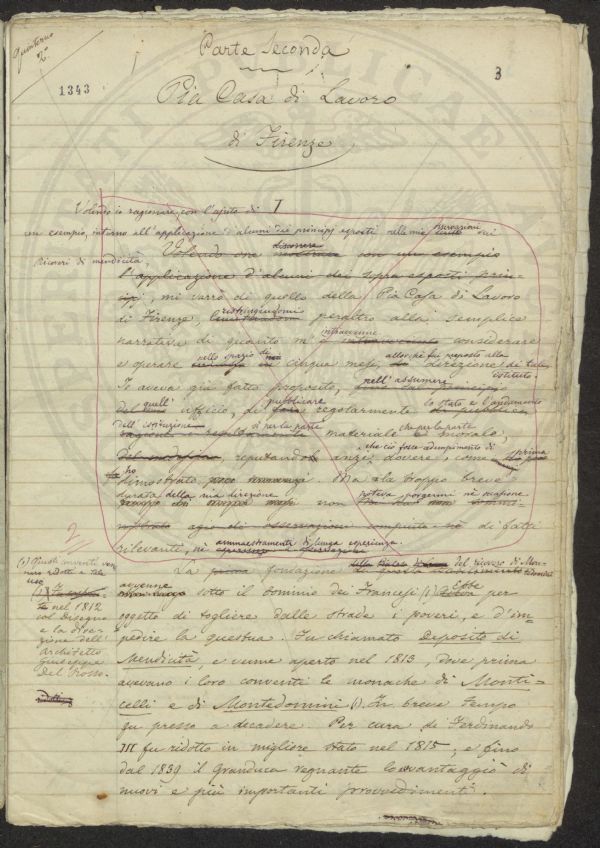 Quinterno
2º
Parte Seconda
3
1343
Pia Casa di Lavoro
di Firenze
I
Volendo io ragionare, con l'ajuto di
un esempio, intorno all'applicazione d'alcuni dei principj esposti nelle mie
sui
Ricoveri di mendicità,
discorrere
Volendo ora mostrare con un esempio
l'applicazione d'alcuni dei sopra esposti prin-
cipj, mi varrò di quello della Pia Casa di Lavoro
restringendomi
di Firenze, limitandomi peraltro alla semplice
intravvenne
narrativa di quanto m'è intravvenuto considerare
nello spazio di
allorchè fui preposto alla
e operare in cinque mesi, di direzione di tale
istituto.
nell'assumere
Io aveva già fatto proposito,
quell'
pubblicare
lo stato e l'andamento
ufficio, di fare regolarmente di pubblica
dell'istituzione sì per la parte
che per la parte
materiale e morale,
che ciò fosse adempimento di
reputandol anzi dovere, come
prima
ho
dimostrato poco innanzi. Ma la troppo breve
durata della mia direzione
poteva porgermi nè cagione
non
agio di osservazioni compiute nè di fatti
ammaestramenti di lunga esperienza.
rilevanti, nè
2
del ricovero di Men-
dicità
La prima fondazione di
avvenne
sotto il dominio dei Francesi (1)
Ebbe
per
oggetto di togliere dalle strade i poveri, e d'im-
pedire la questua. Fu chiamato Deposito di
Mendicità, e venne aperto nel 1813, dove prima
avevano i loro conventi le monache di Monti-
celli e di Montedomini (1). In breve tempo
fu presso a decadere. Per cura di Ferdinando
III fu ridotto in migliore stato nel 1815; e fino
dal 1839 il Granduca regnante lo avvantaggiò di
nuovi e più importanti provvedimenti.
(1) Questi conventi ven-
nero ridotti a tale
uso
nel 1812
col disegno
e la dire-
zione dell'
architetto
Giuseppe
Del Rosso.